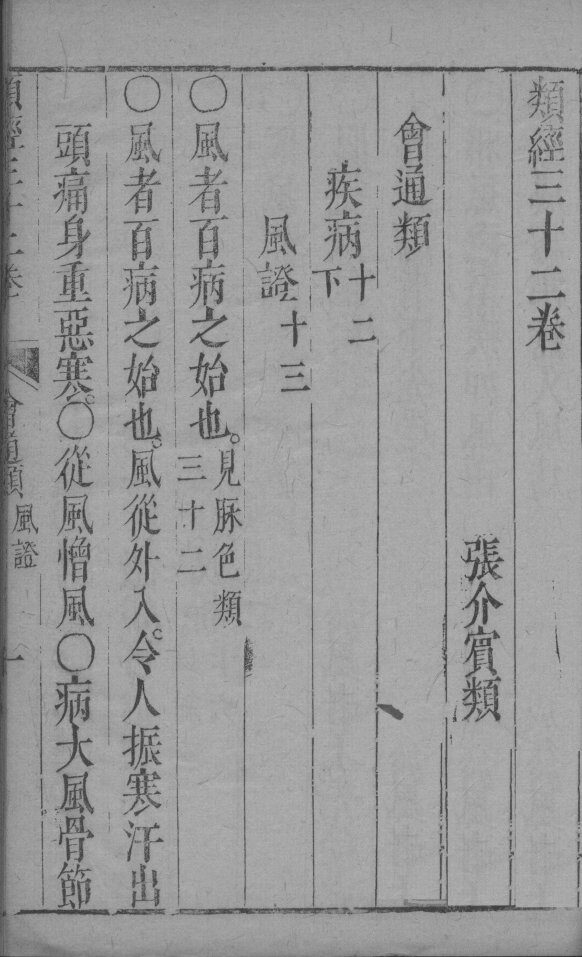 類經三十二卷
張介賔類
會通類
疾病十二
下
風證十三
○風者百病之始也。見脉色類
三十二
○風者百病之始也。風從外入。令人振寒汗出
頭痛身重惡寒。○從風憎風○病大風骨節
類經三十二卷 會通類 風證 一